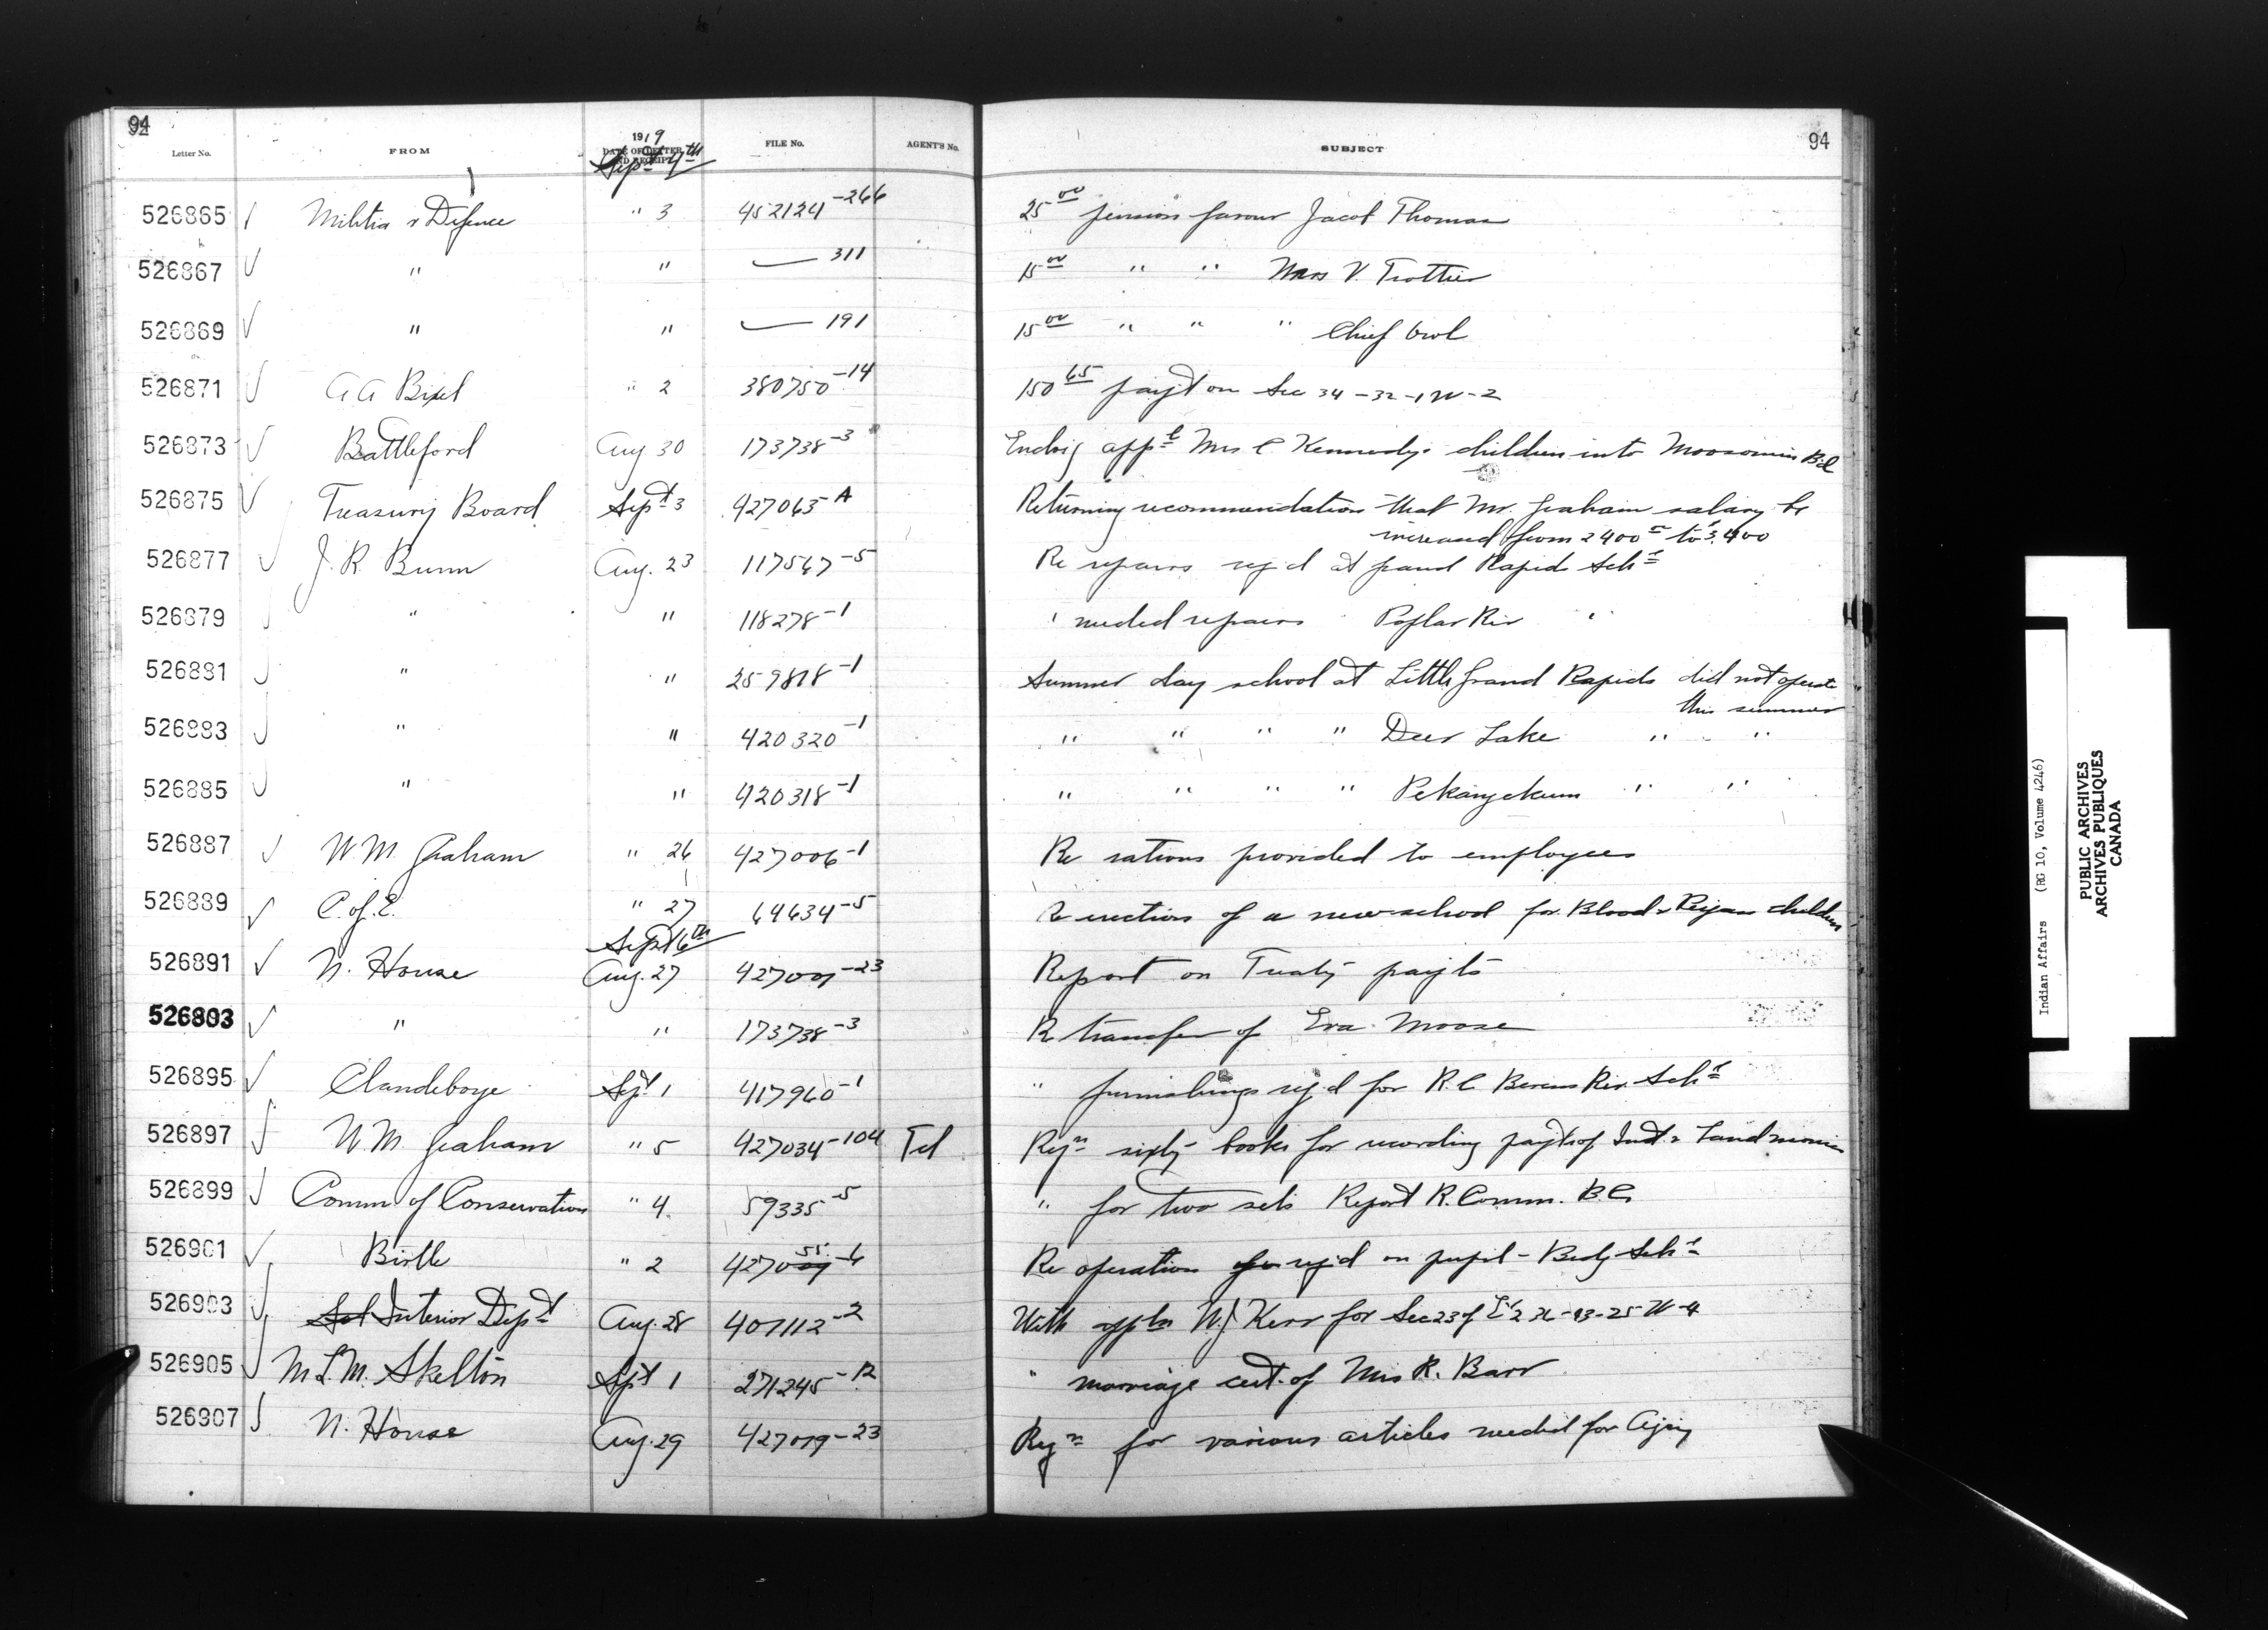 94 94
1919
Letter No. FROM DATE OF LETTER AND RECEIPT FILE No. AGENT'S No. SUBJECT
Sept 4th
526865 Militia & Defence " 3 452124-266 25 00 pension favour Jacob Thomas
526867 " " — 311 15 00 " " Mrs V. Trottier
526869 " " — 191 15 00 " " " Chief Owl
526871 A A Bixel " 2 380750-14 150 65 payt on Sec 34-32-1W-2
526873 Battleford Aug 30 173738-3 Mrs C Kennedy's children into Moosomin Bd
526875 Treasury Board Sept 3 427063-A Returning recommendation that Mr. Graham salary be
increased from 2400 to 3400
526877 J. R. Bunn Aug. 23 117567-5 Re repairs reqd at Grand Rapids Schl
526879 " " 118278-1 " needed repairs Poplar Riv "
526881 " " 259818-1 Summer day school at Little Grand Rapids did not operate
this summer
526883 " " 420320-1 " " " " Deer Lake " "
526885 " " 420318-1 " " " " Pekangekum " "
526887 W. M. Graham " 26 427006-1 Re rations provided to employees
526889 C. of E. " 27 64634-5 Re erection of a new school for Blood & Peigan children
Sept 6th
526891 N. House Aug. 27 427009-23 Report on Treaty payts
526893 " " 173738-3 Re transfer of Eva Moose
526895 Clandeboye Sept 1 417960-1 " furnishings reqd for R.C Berens Riv. Schl
526897 W. M. Graham " 5 427034-104 Tel Reqn sixty books for recording payts of Int & Land monies
526899 Comm of Conservation " 4 59335-5 " for two sets Report R. Comm. B.C.
526901 Birtle " 2 427055-6 Re operation reqd on pupil - Bdg Schl
526903 Interior Dept Aug. 28 401112-2 With appln W.J Kerr for Sec 23
526905 M L. M. Skelton Sept 1 271245-12 " marriage cert. of Mrs R. Barr
526907 N. House Aug. 29 427019-23 Reqn for various articles needed for Agcy
Indian Affairs (RG 10, Volume 4246)
PUBLIC ARCHIVES
ARCHIVES PUBLIQUES
CANADA